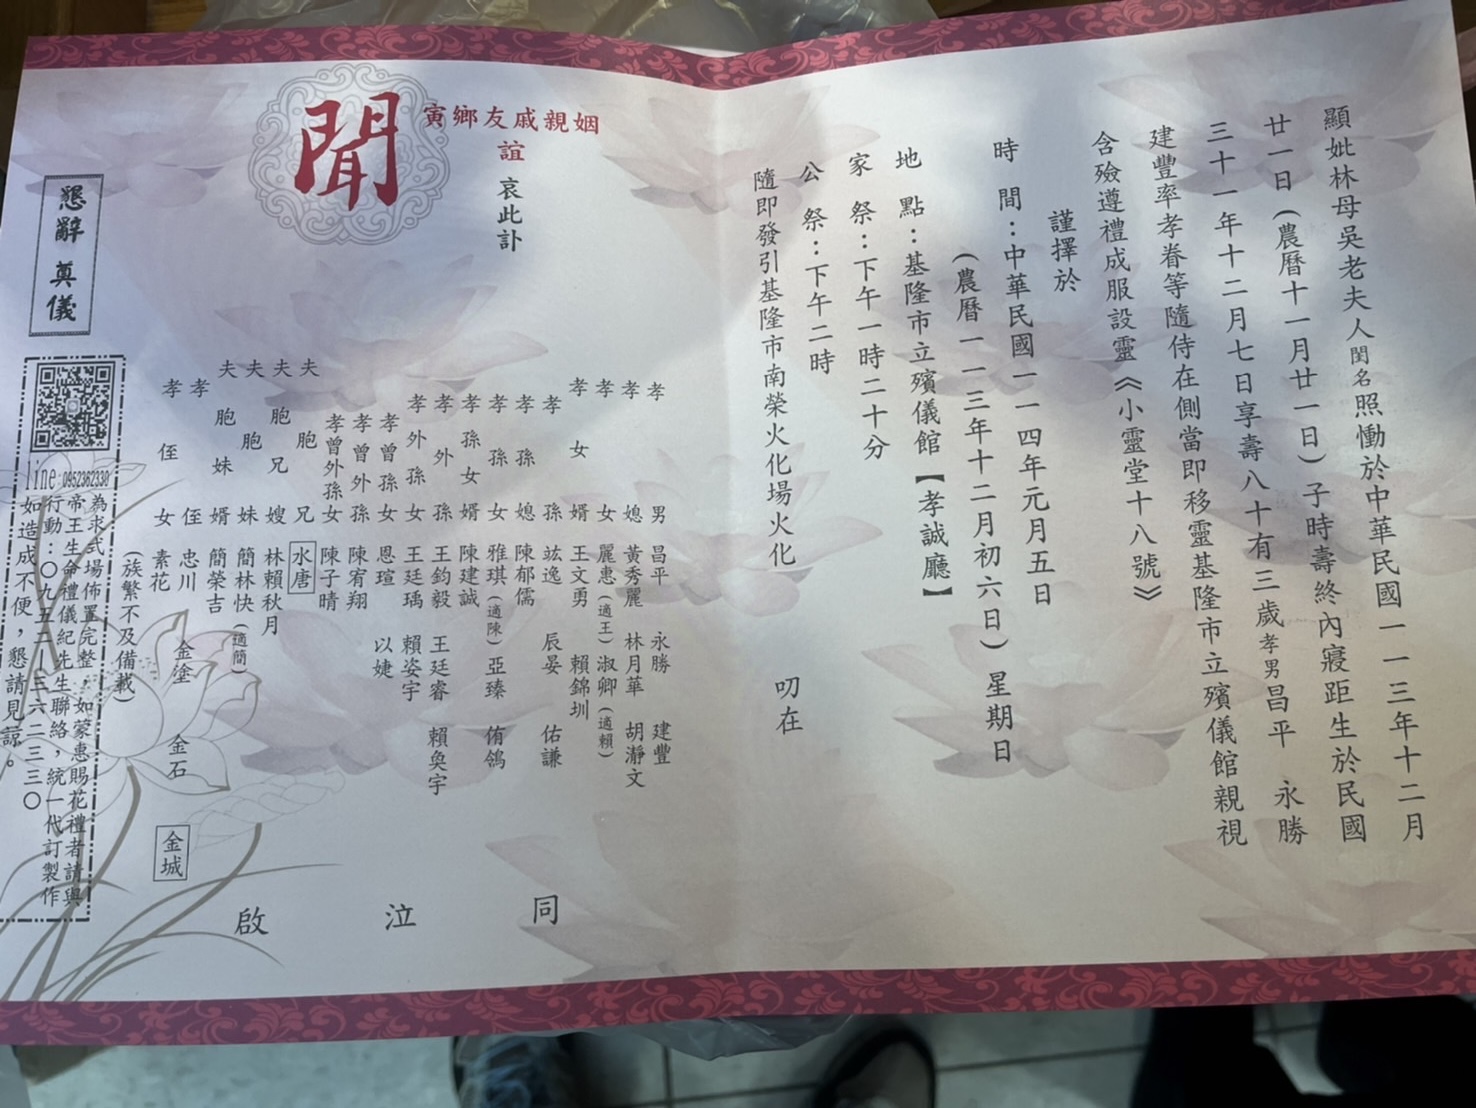 顯妣林母吳老夫人閨名照慟於中華民國一一三年十二月
廿一日(農曆十一月廿一日)子時壽終內寢距生於民國
三十一年十二月七日享壽八十有三歲孝男昌平 永勝
建豐率孝眷等隨侍在側當即移靈基隆市立殯儀館親視
含殮遵禮成服設靈《小靈堂十八號》
謹擇於
時間:中華民國一一四年元月五日
(農曆一一三年十二月初六日)星期日
地點:基隆市立殯儀館【孝誠廳】
家祭:下午一時二十分
公祭:下午二時
隨即發引基隆市南榮火化場火化
叨在
姻親戚友鄉寅
誼 哀此訃
聞
孝男 昌平 永勝 建豐
孝媳 黃秀麗 林月華 胡瀞文
孝女 麗惠(適王) 淑卿(適賴)
孝女婿 王文勇 賴錦圳
孝孫 竑逸 辰晏 佑謙
孝孫媳 陳郁儒
孝孫女 雅琪(適陳) 亞臻 侑鴒
孝孫女婿 陳建誠
孝外孫 王鈞毅 王廷睿 賴奐宇
孝外孫女 王廷瑀 賴姿宇
孝曾孫女 恩瑄 以婕
孝曾外孫 陳宥翔
孝曾外孫女 陳子晴
夫胞兄 水唐
夫胞兄嫂 林賴秋月
夫胞妹 簡林快(適簡)
夫胞妹婿 簡榮吉
孝侄 忠川 金塗 金石 金城
孝侄女 素花
(族繁不及備載)
同泣啟
懇辭奠儀
line:0952362330
為求式場佈置完整,如蒙惠賜花禮者請與
帝王生命禮儀紀先生聯絡,統一代訂製作
行動:〇九五二-三六二三三〇
如造成不便,懇請見諒。